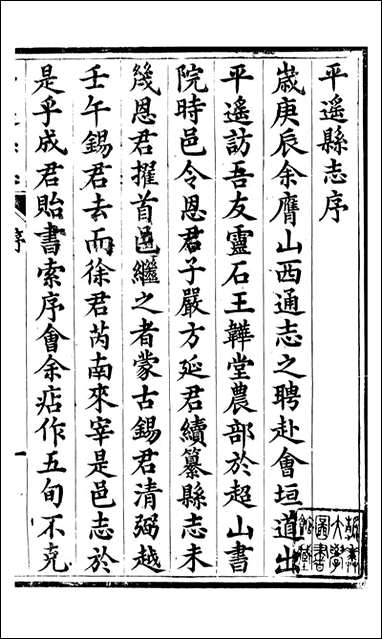 平遙縣志序
歲庚辰余膺山西通志之聘赴會垣道出
平遙訪吾友靈石王韡堂農部於超山書
院時邑令恩君子嚴方延君續纂縣志未
幾恩君擢首邑繼之者蒙古錫君清弼越
壬午錫君去而徐君芮南來宰是邑志於
是乎成君貽書索序會余痁作五旬不克
序
一